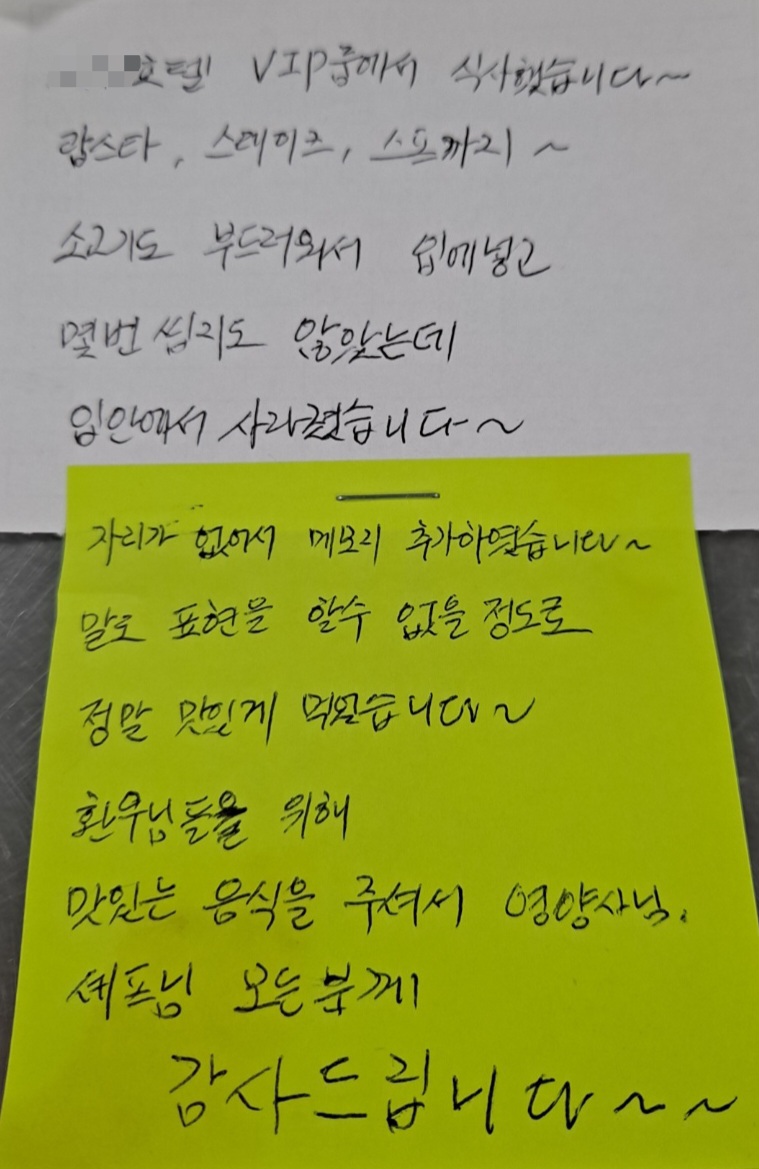 호텔 VIP룸에서 식사했습니다~
랍스타, 스테이크, 스프까지 ~
소고기도 부드러워서 입에넣고
몇번 씹지도 않았는데
입안에서 사라졌습니다~
자리가 없어서 메모지 추가하였습니다~
말로 표현을 할수 없을 정도로
정말 맛있게 먹었습니다~
환우님들을 위해
맛있는 음식을 주셔서 영양사님,
셰프님 모든분께
감사드립니다~~